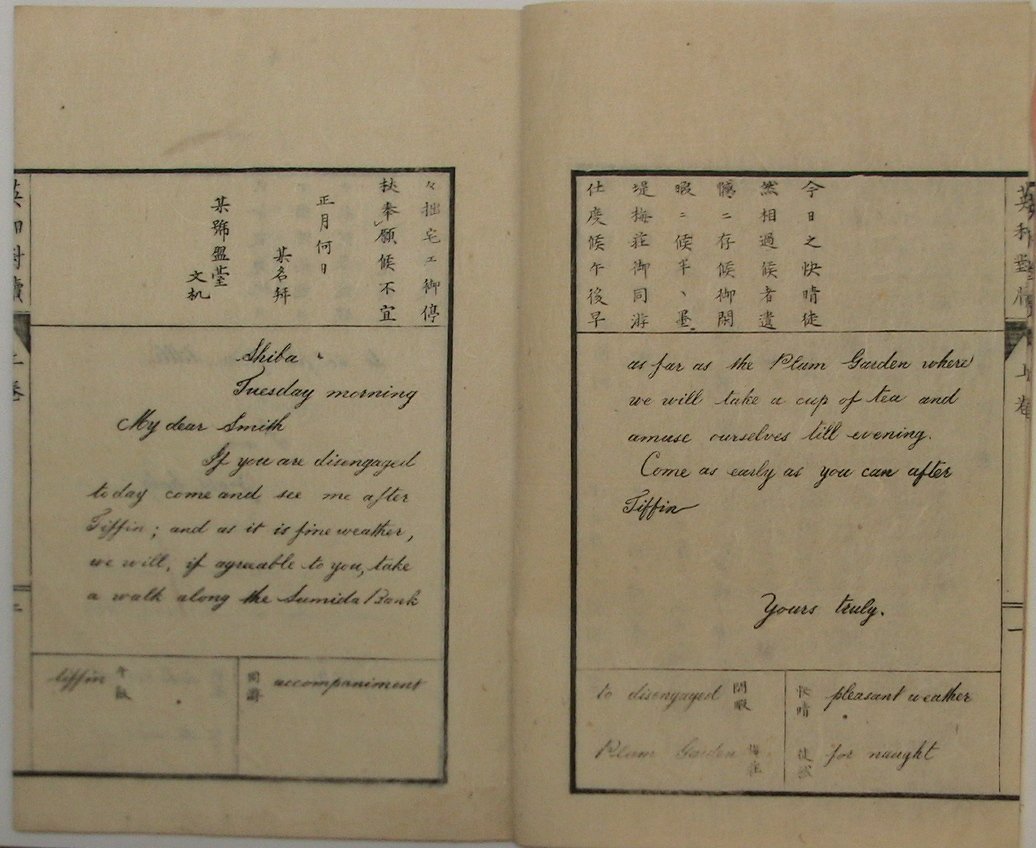 々拙宅エ御停
奉願候不宜
正月何日
某名拜
某號盟臺
文机
Shiba
Tuesday morning
My dear Smith
If you are disengaged
to day come and see me after
Tiffin; and as it is fine weather,
we will, if agreeable to you, take
a walk along the Sumida Bank
同游 accompaniment
tiffin 午飯
上卷
二
今日之快晴徒
然相過候者遺
憾ニ存候御閑
暇ニ候ハヽ墨
堤梅莊御同游
仕度候午後早
as far as the Plum Garden where
we will take a cup of tea and
amuse ourselves till evening.
Come as early as you can after
Tiffin
Yours truly.
快晴 pleasant weather
for naught
to disengaged 閑暇
Plum Garden 梅莊
上卷
一